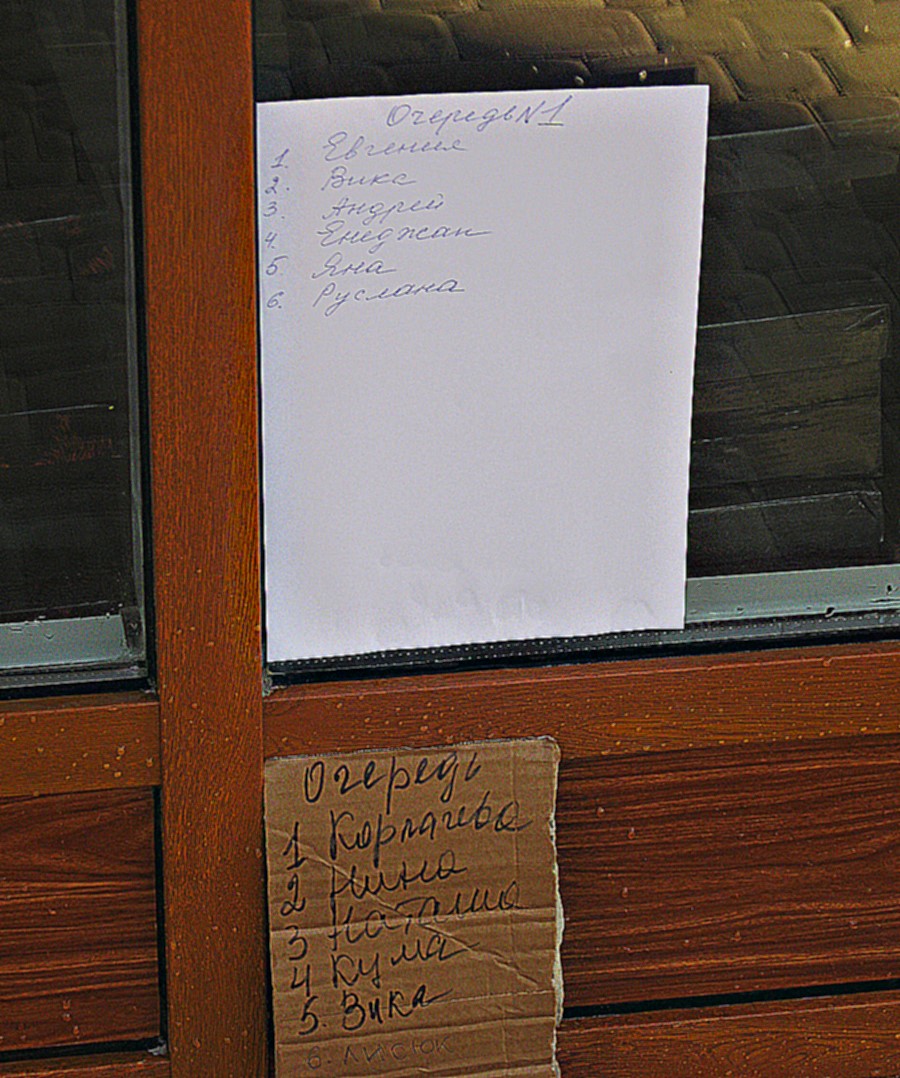 Очередь N1
1. Евгения
2. Вика
3. Андрей
4. Енеджан
5. Яна
6. Руслана
Очередь
1 Корпачева
2 Нина
3 Наташа
4 Кума
5. Вика
6. Лисюк